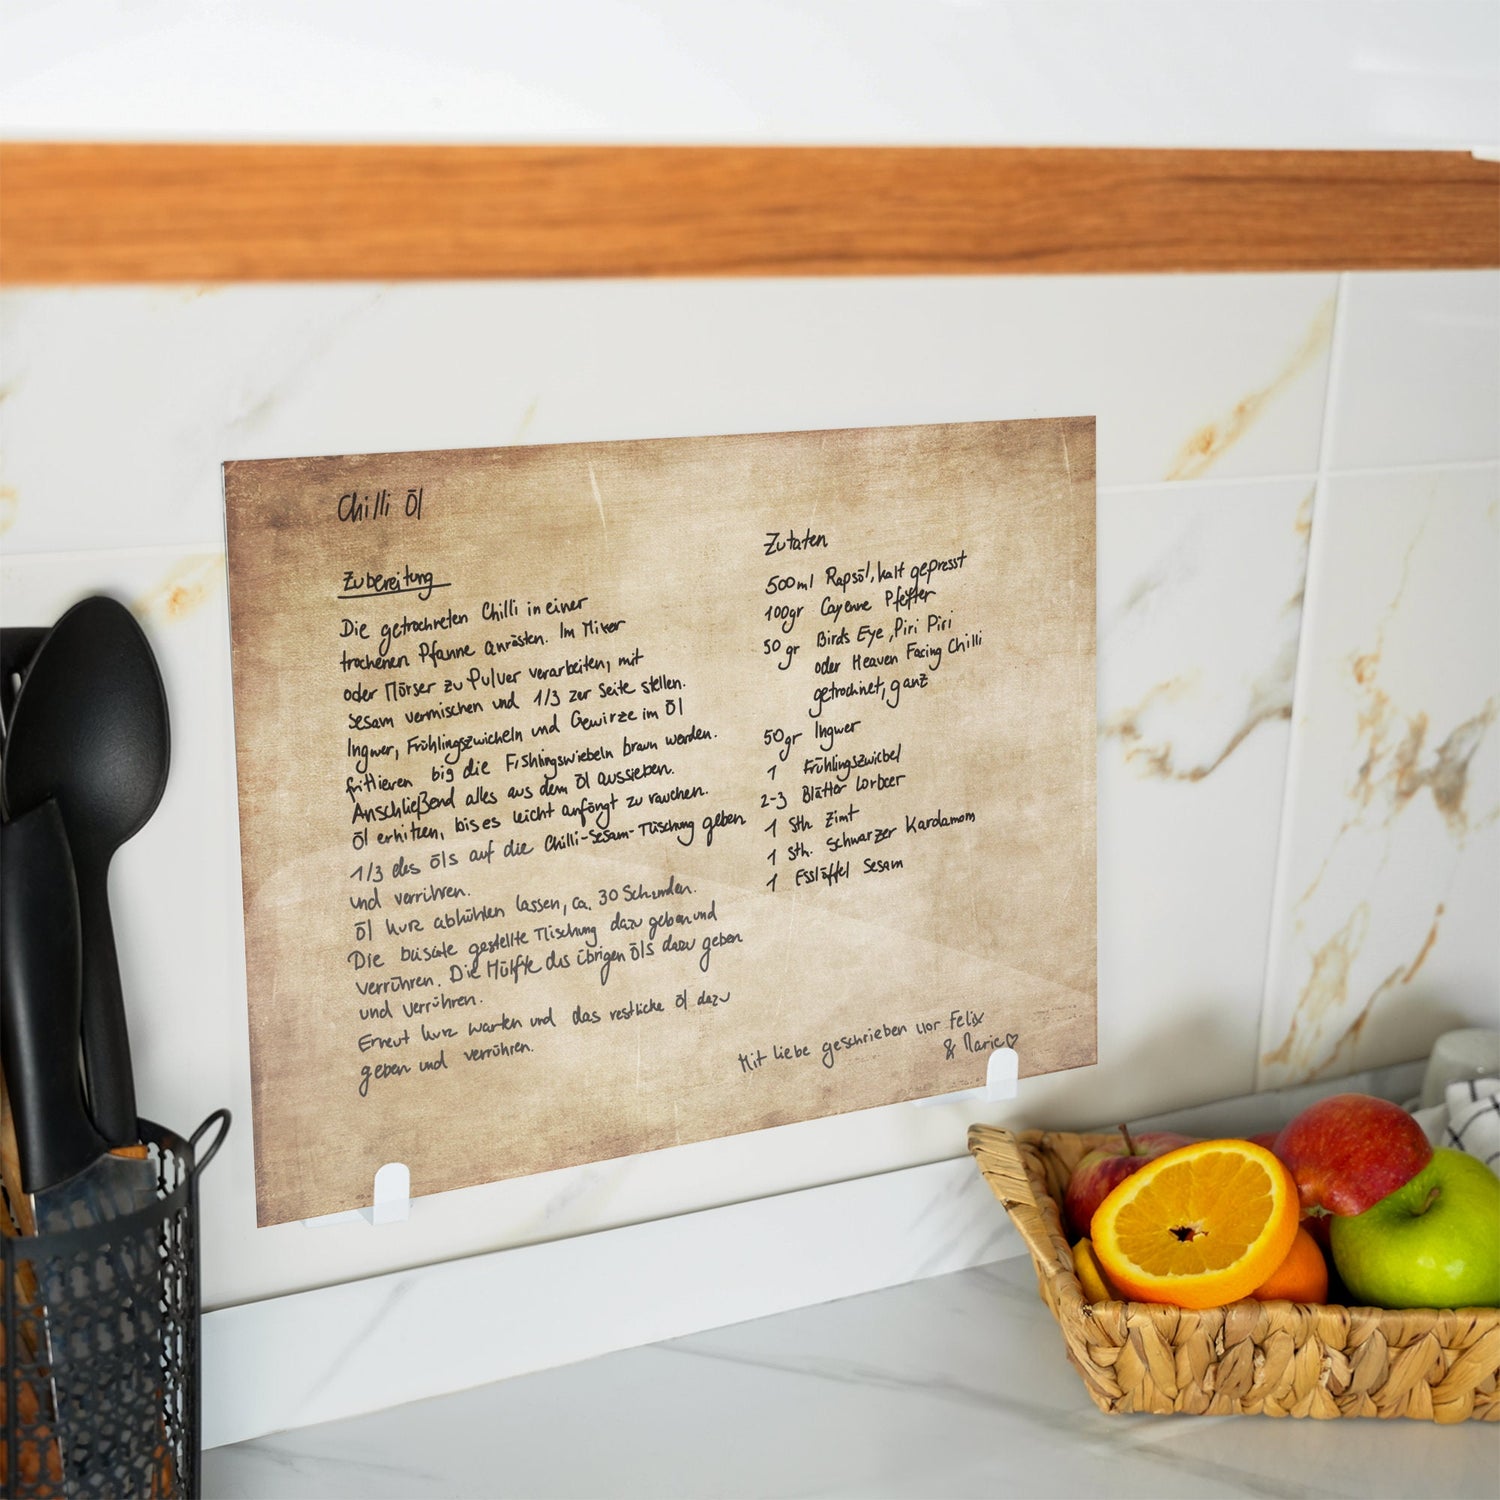 Chilli Öl
Zubereitung
Die getrockneten Chilli in einer
trockenen Pfanne anrösten. Im Mixer
oder Mörser zu Pulver verarbeiten, mit
Sesam vermischen und 1/3 zur Seite stellen.
Ingwer, Frühlingszwiebeln und Gewürze im Öl
frittieren bis die Frühlingswiebeln braun werden.
Anschließend alles aus dem Öl aussieben.
Öl erhitzen, bis es leicht anfängt zu rauchen.
1/3 des Öls auf die Chilli-Sesam-Mischung geben
und verrühren.
Öl kurz abkühlen lassen, ca. 30 Sekunden.
Die beiseite gestellte Mischung dazu geben und
verrühren. Die Hälfte des übrigen Öls dazu geben
und verrühren.
Erneut kurz warten und das restliche Öl dazu
geben und verrühren.
Zutaten
500ml Rapsöl, kalt gepresst
100gr Cayenne Pfeffer
50 gr Birds Eye, Piri Piri
oder Heaven Facing Chilli
getrocknet, ganz
50gr Ingwer
1 Frühlingszwiebel
2-3 Blätter Lorbeer
1 Stk. Zimt
1 Stk. Schwarzer Kardamom
1 Esslöffel Sesam
Mit Liebe geschrieben von Felix
& Marie♡